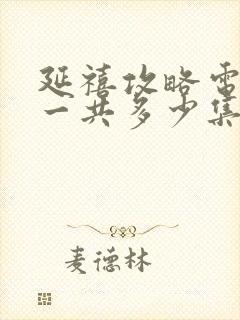 延禧攻略电
一共多少集
麦德林